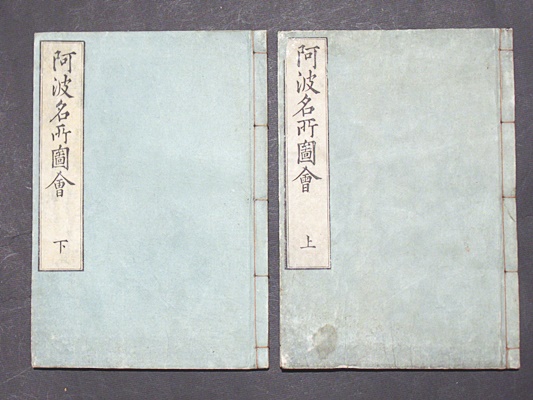 阿波名所圖會
上
阿波名所圖會
下